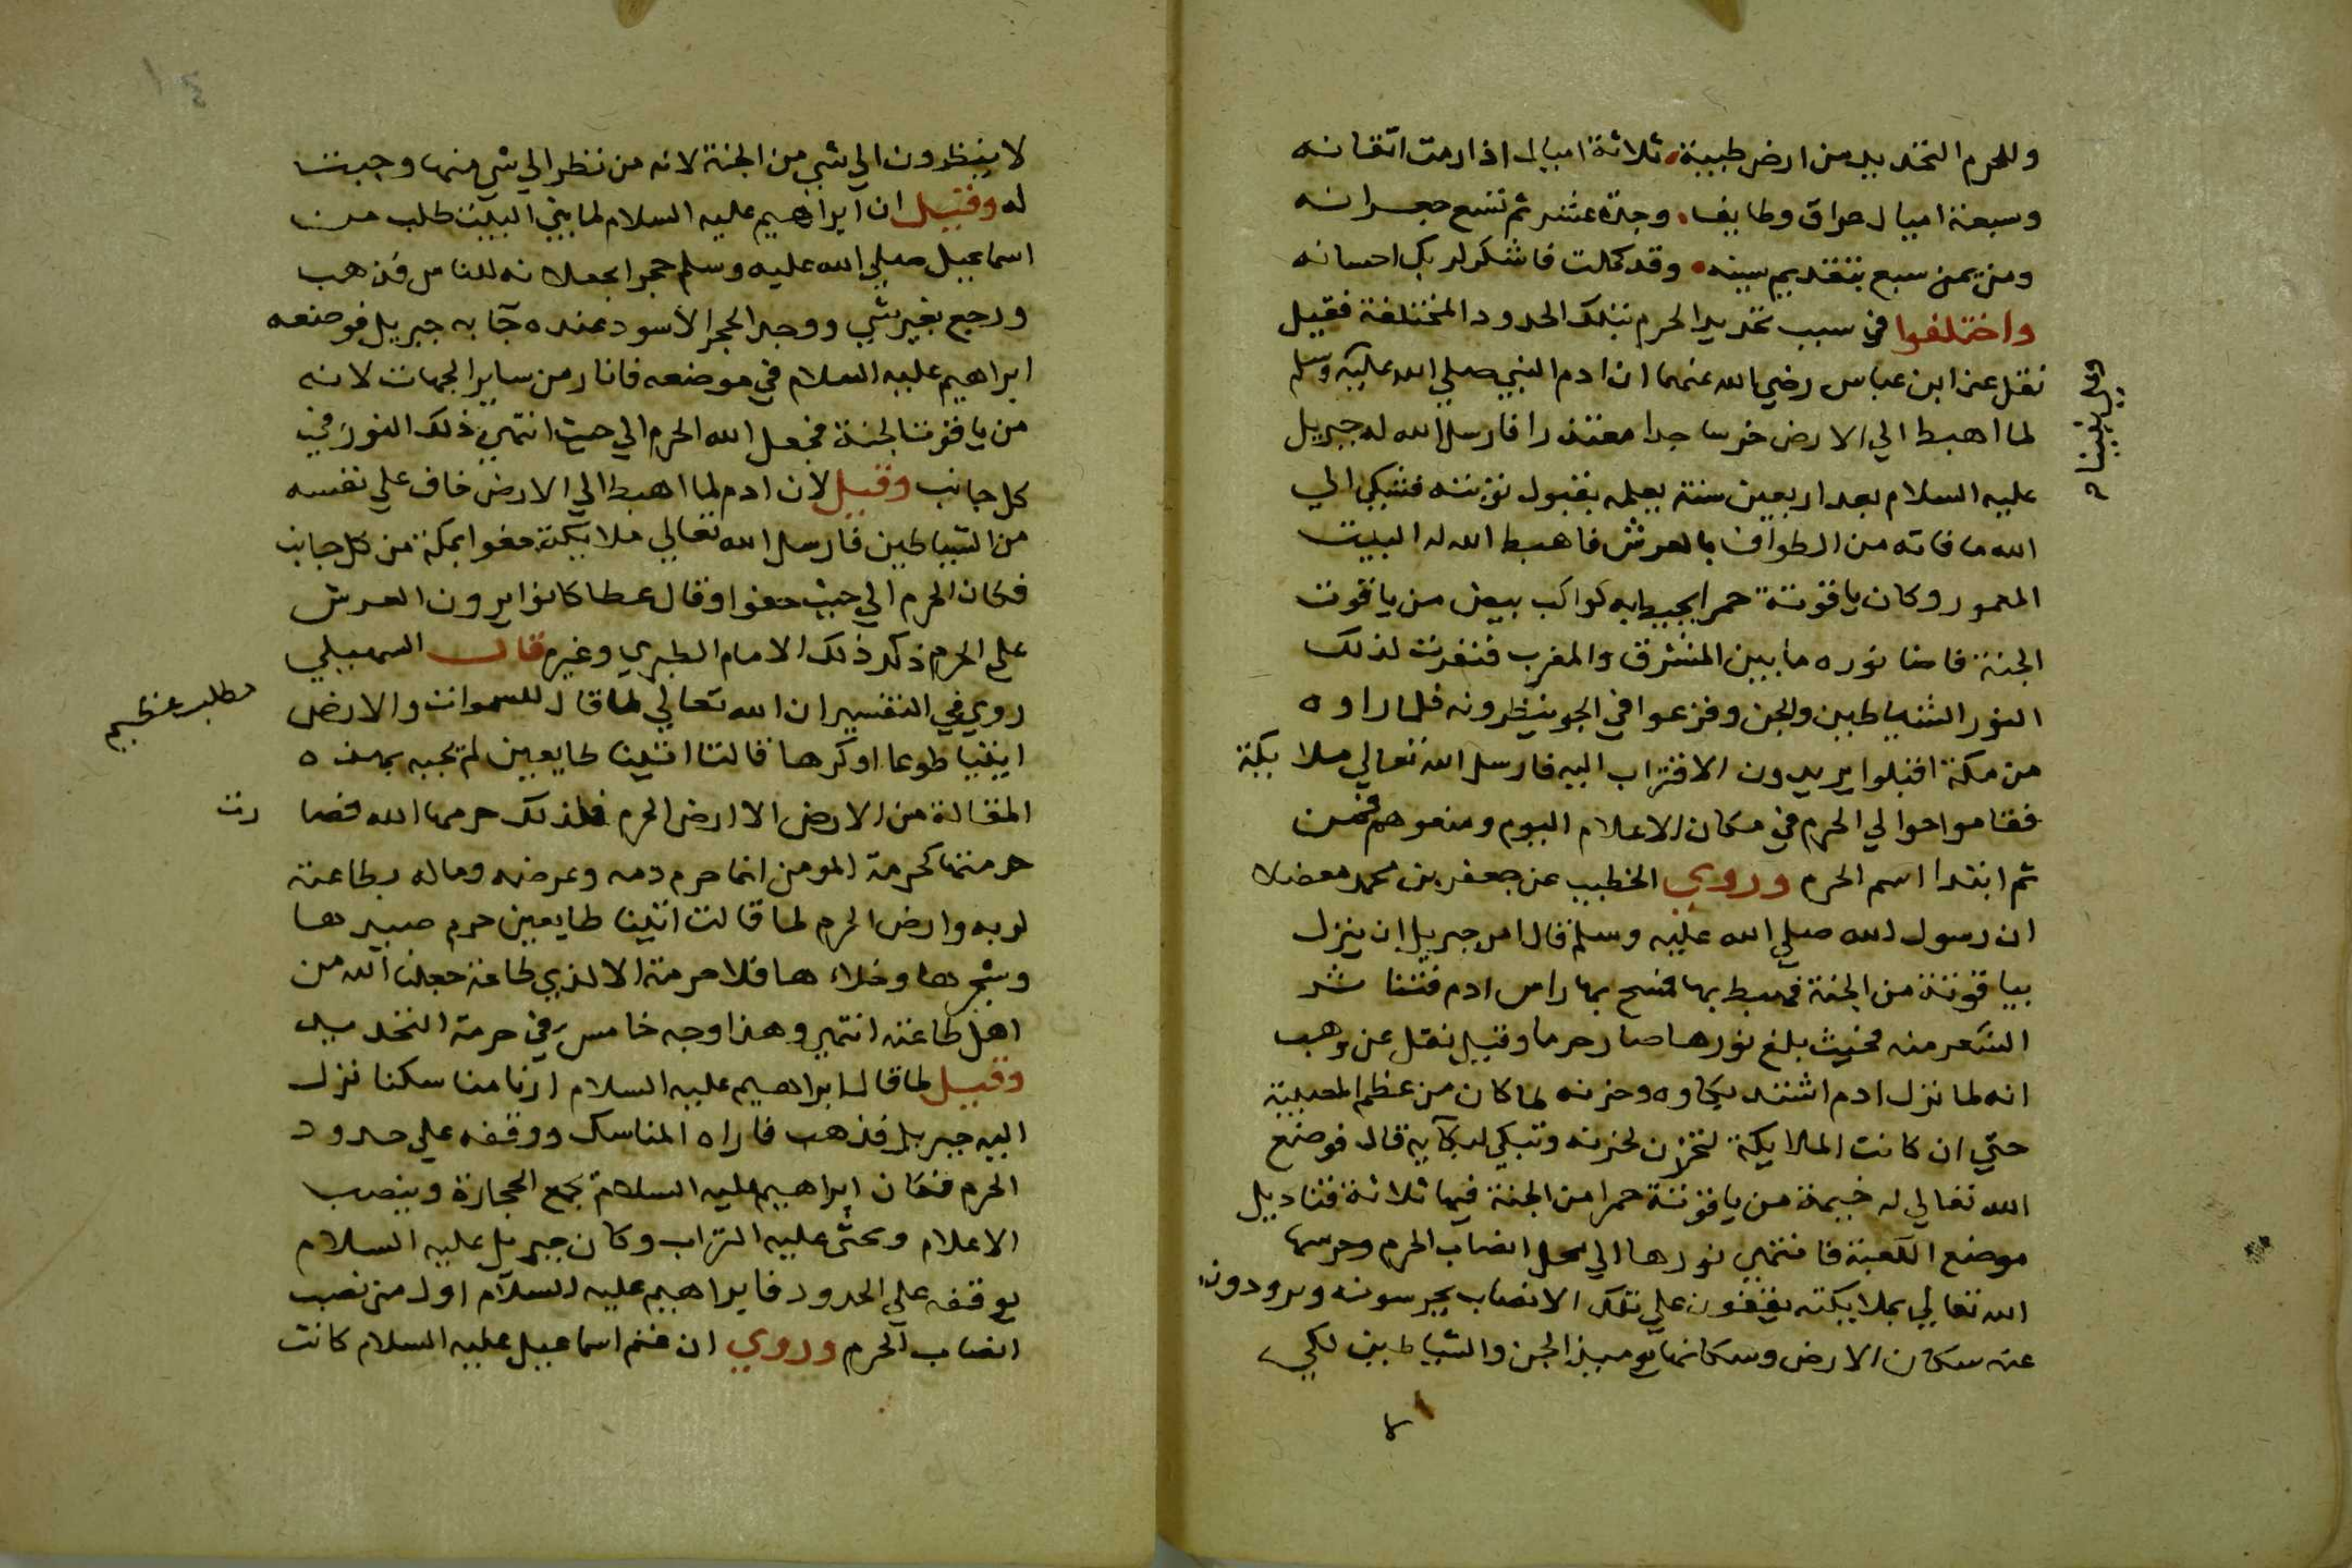 وللحرم التحديد من ارض طيبة ثلاثة اميال اذا رمت اتقانه
وسبعة اميال عراق وطايف وجدة عشر ثم تسع جعرانه
ومن يمن سبع بتقديم سينه وقد كملت فاشكر لربك احسانه
واختلفوا في سبب تحديد الحرم بتلك الحدود المختلفة فقيل
نقل عن ابن عباس رضي الله عنهما ان ادم النبي صلي الله عليه وسلم
لما اهبط الي الارض خر ساجدا معتذرا فارسل الله له جبريل
عليه السلام بعد اربعين سنة يعلمه بقبول توبته فشكي الي
الله ما فاته من الطواف بالعرش فاهبط الله له البيت
المعمور وكان ياقوتة حمرا يحيط به كواكب بيض من ياقوت
الجنة فاضا نوره ما بين المشرق والمغرب فنفرت لذلك
النور الشياطين والجن وفزعوا في الجو ينظرونه فلما راوه
من مكة اقبلوا يريدون الاقتراب اليه فارسل الله تعالي ملايكة
فقاموا حوالي الحرم في مكان الاعلام اليوم ومنعوهم فمن
ثم ابتدا اسم الحرم وروي الخطيب عن جعفر بن محمد معضلا
ان رسول الله صلي الله عليه وسلم قال امر جبريل ان ينزل
بياقوتة من الجنة فهبط بها فمسح بها راس ادم فتناثر
الشعر منه فحيث بلغ نورها صار حرما وقيل نقل عن وهب
انه لما نزل ادم اشتد بكاوه وحزنه لما كان من عظم المصيبة
حتي ان كانت الملايكة لتحزن لحزنه وتبكي لبكايه قال فوضع
الله تعالي له خيمة من ياقوتة حمرا من الجنة فيها ثلاثة قناديل
موضع الكعبة فانتهي نورها الي محل انصاب الحرم وحرسها
الله تعالي بملايكته يقفون علي تلك الانصاب يحرسونه ويرودون
عنه سكان الارض وسكانها يوميذ الجن والشياطين لكي
لا ينظرون الي شي من الجنة لانه من نظر الي شي منها وجبت
له وقيل ان ابراهيم عليه السلام لما بني البيت طلب من
اسماعيل صلي الله عليه وسلم حجرا يجعلانه للناس فذهب
ورجع بغير شي ووجد الحجر الاسود عنده جآ به جبريل فوضعه
ابراهيم عليه السلام في موضعه فانار من ساير الجهات لانه
من ياقوت الجنة فجعل الله الحرم الي حيث انتهي ذلك النور في
كل جانب وقيل لان ادم لما اهبط الي الارض خاف علي نفسه
من الشياطين فارسل الله تعالي ملايكة حفوا بمكة من كل جانب
فكان الحرم الي حيث حفوا وقال عطا كانوا يرون العرش
علي الحرم ذكر ذلك الامام الطبري وغيره قال السهيلي
روي في التفسير ان الله تعالي لما قال للسموات والارض
مطلب عظيم
ايتيا طوعا او كرها قالتا اتينا طايعين لم يجبه بهذه
المقالة من الارض الا ارض الحرم فلذلك حرمها الله فصا رت
حرمتها كحرمة المومن انما حرم دمه وعرضه وماله بطاعته
لربه وارض الحرم لما قالت اتينا طايعين حرم صيدها
وشجرها وخلاءها فلا حرمة الا لذي طاعة جعلنا الله من
اهل طاعته انتهي وهذا وجه خامس في حرمة التحديد
وقيل لما قال ابراهيم عليه السلام ارنا مناسكنا نزل
اليه جبريل فذهب فاراه المناسك ووقفه علي حدود
الحرم فكان ابراهيم عليه السلام يجمع الحجارة وينصب
الاعلام ويحثي عليه التراب وكان جبريل عليه السلام
يوقفه علي الحدود فابراهيم عليه السلام اول من نصب
انصاب الحرم وروي ان غنم اسماعيل عليه السلام كانت